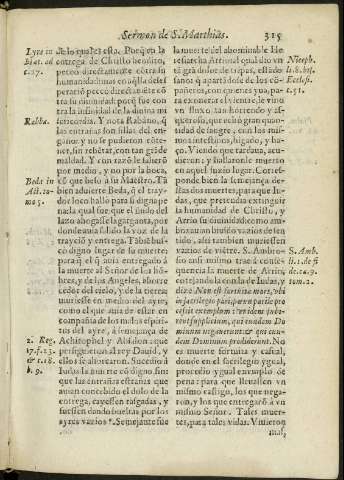 Sermon de S. Matthias.
315
Lyra in
Mat. ad
c. 27.
Raba.
Beda in
Act. to-
mo 5.
2. Reg.
17. f. 23.
& c. 18.
b. 9.
entrega de Christo bendito,
peco directamente contra su
humanidad
peraciõ peco directamẽte cõ
tra su diuinidad: porq̃ fue con
tra la
sericordia. Y nota Rabano, q̃
las entrañas son sillas del en-
gaño: y no se pudieron conte-
ner, sin rebẽtar, con tan grãde
maldad. Y con razõ le
por medio, y no por la boca,
cõ que besò a su Maestro. Tã
bien aduierte Beda, q̃ el tray-
dor loco hallò para si digna pe
na: la qual fue que el ñudo del
lazo ahogasse la garganta, por
donde auia salido la voz de la
trayciõ y entrega. Tãbiẽ bus-
cò digno lugar de su muerte:
porq̃ el q̃ auia entregado à
la muerte al Señor de los hõ-
bres, y de los Angeles, aborre
cedor del cielo, y de la tierra
muriesse en medio del ayre,
como el que auia de estar en
compañia de los malos espiri-
tus del ayre, à semejança de
Achitophel y Absalon: que
persiguieron al rey Dauid, y
ellos se ahorcaron. Sucediò à
Iudas la muerte cõ digno fin:
que las entrañas estrañas que
auian concebido el dolo de la
entrega, cayessen rasgadas, y
fuessen dando bueltas por los
ayres vazios. Semejante fue
la muerte del abominable He
resiarcha Arrio: al qual dio vn
tã grã dolor de tripas, estãdo
sano: q̃ apartãdose de los cõ-
pañeros, con quienes yua, pa-
ra exonerar el vientre, le vino
vn fluxo tan horrendo y as-
queroso, que echò gran quan-
tidad de sangre, con las mis-
mos intestinos, higado, y ba-
ço. Viendo que tardaua, acu-
dieron: y hallaronle muerto
en aquel suzio lugar. Corres-
ponde bien la semejança de-
stas dos muertes, para que Iu-
das, que pretendia extinguir
la humanidad de Christo, y
Arrio su diuinidad: como am-
bos auian biuido vazios de sen
tido, assi tambien muriessen
vazios de viẽtre. S. Ambro-
sio assi mismo trae à conse-
quencia la muerte de Arrio,
cotejandola con la de Iudas, y
dize: Non est fortuita mors, vbi
in sacrilegio pari, pœnæ partis pro
cessit exemplum: vt idem subi-
rent supplicium, qui eundem Do
minum negauerunt: & qui eun-
dem Dominum prodiderunt. No
es muerte fortuita y casual,
donde en el sacrilegio ygual,
procedio ygual exemplo de
pena: para que lleuassen vn
mismo castigo, los que nega-
ron, y los que entregarõ à vn
mismo Señor. Tales muer-
tes, para tales vidas. Viuieron
mal,
Niceph.
li. 8. his.
Ecclesi.
c. 51.
S. Amb.
li. 1. de fi
de. ca. 9.
tom. 2.